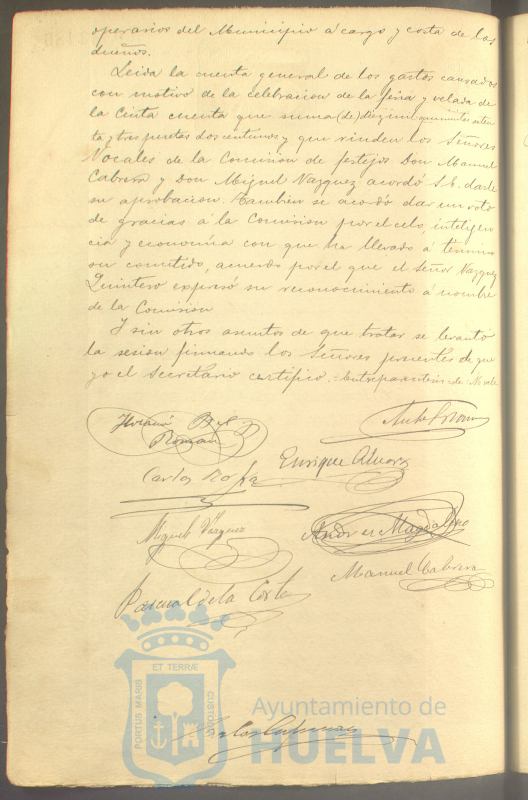 operarios del Municipio á cargo y costa de los
dueños.
Leida la cuenta general de los gastos causados
con motivo de la celebracion de la feria y velada de
la Cinta cuenta que suma (de) diez mil quinientas seten
ta y tres pesetas dos centimos y que rinden los Señores
Vocales de la Comision de festejos Don Manuel
Cabrera y Don Miguel Vazquez acordó S.E. darle
su aprobacion. Tambien se acordó dar un voto
de gracias á la Comision por el celo, inteligen
cia y economia con que ha llevado á término
su cometido, acuerdo por el que el Señor Vazquez
Quintero expresó su reconocimiento á nombre
de la Comision
Y sin otros asuntos de que tratar se levantó
la sesion firmando los Señores presentes de que
yo el Secretario certifico. = Entreparentesis = de = No vale
Roman
Carlos
Enrique
Miguel Vázquez
Andres Magdaleno
Manuel Cabrera
Pascual de la Corte
PORTUS MARIS ET TERRÆ CUSTODIA
Ayuntamiento de
HUELVA